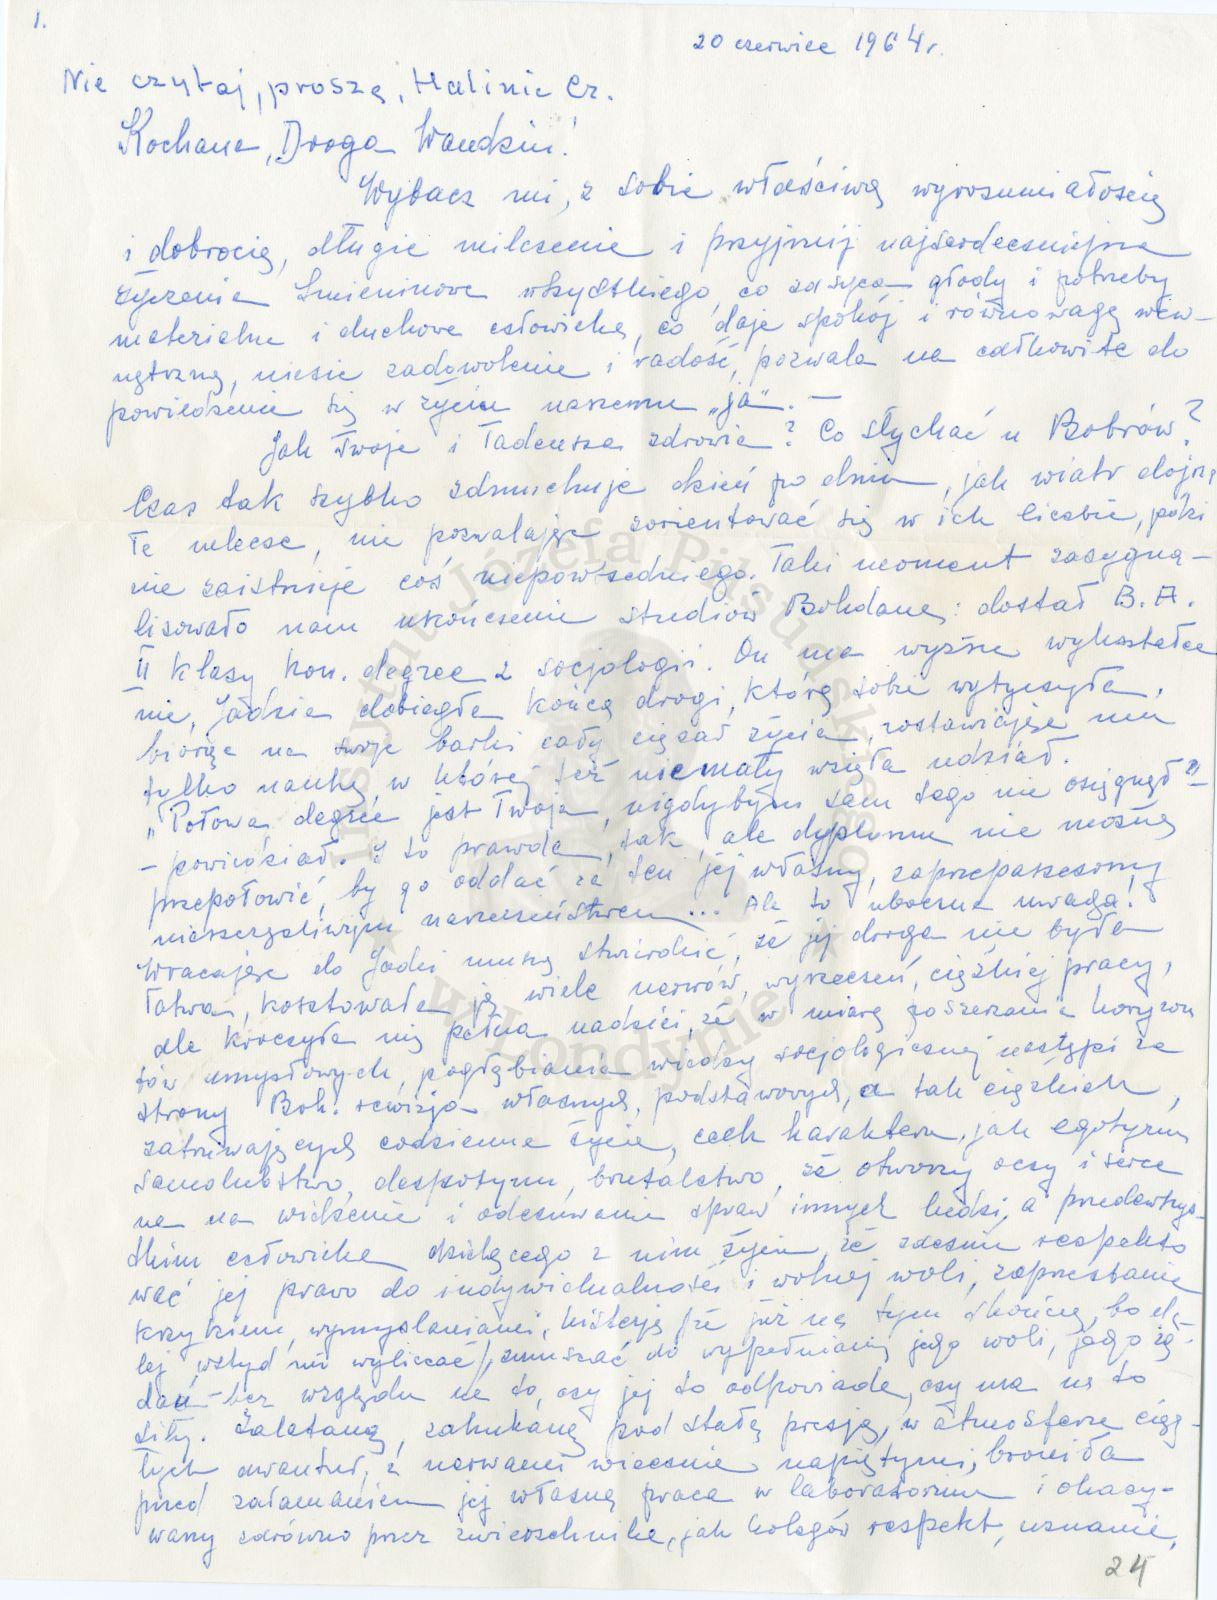 1.
20 czerwiec 1964 r.
Nie czytaj, proszę, Halinie Cz.
Kochana, Droga Wandziu!
Wybacz mi, z sobie właściwą wyrozumiałością
i dobrocią, długie milczenie i przyjmij najserdeczniejsze
życzenia Imieninowe wszystkiego, co zasyca głody i potrzeby
materialne i duchowe człowieka, co daje spokój i równowagę wew-
nętrzną, niesie zadowolenie i radość, pozwala na całkowite do
powiedzenie się w życiu naszemu „ja". —
Jak Twoje i Tadeusza zdrowie? Co słychać u Bobrów?
Czas tak szybko zdmuchuje dzień po dniu, jak wiatr dojrza
łe mlecze, nie pozwalając zorientować się w ich liczbie, póki
nie zaistnieje coś niepowszedniego. Taki moment zasygna-
lizowało nam ukończenie studiów Bohdana: dostał B.A.
II klasy hon. degree z socjologii. On ma wyższe wykształce
nie, Jadzia dobiegła końca drogi, którą sobie wytyczyła,
biorąc na swoje barki cały ciężar życia, zostawiając mu
tylko naukę, w której też niemały wzięła udział.
„Połowa degree jest Twoja, nigdybym sam tego nie osiągnął"
- powiedział. I to prawda, tak, ale dyplomu nie można
przepołowić, by go oddać za ten jej własny, zaprzepaszczony
nieszczęśliwym narzeczeństwem... Ale to uboczna uwaga!
Wracając do Jadzi muszę stwierdzić, że jej droga nie była
łatwa, kosztowała ją wiele nerwów, wyrzeczeń, ciężkiej pracy,
ale kroczyła nią pełna nadziei, że w miarę poszerzania horyzon
tów umysłowych, pogłębiania wiedzy socjologicznej nastąpi ze
strony Boh. rewizja własnych, podstawowych, a tak ciężkich,
zatruwających codzienne życie, cech charakteru, jak egotyzm
samolubstwo, despotyzm, brutalstwo, że otworzy oczy i serce
na widzenie i odczuwanie spraw innych ludzi, a przedewszys-
tkim człowieka dzielącego z nim życie, że zacznie respekto
wać jej prawo do indywidualności i wolnej woli, zaprzestanie
krzykiem, wymyślaniami, histerją /że już na tym skończę, bo da-
lej wstyd mi wyliczać/, zmuszać do wypełniania jego woli, jego żą-
dań - bez względu na to, czy jej to odpowiada, czy ma na to
siły. Zalataną, zahukaną pod stałą presją, w atmosferze ciąg-
łych awantur, z nerwami wiecznie napiętymi, broniła
przed załamaniem jej własna praca w laboratorium i okazy-
wany zarówno przez zwierzchnika, jak kolegów respekt, uznanie,
24
Instytut Józefa Piłsudskiego
w Londynie